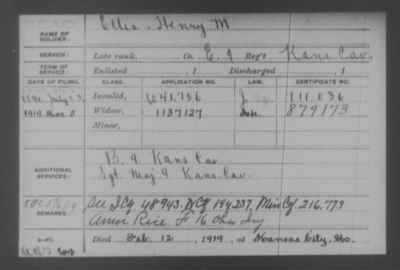 DEAD
NAME OF SOLDIER: Ellis, Henry M.
SERVICE: Late rank, Co. E, 9 Reg't Kans Cav.
TERM OF SERVICE: Enlisted , 1 Discharged , 1
DATE OF FILING. CLASS. APPLICATION NO. LAW. CERTIFICATE NO.
1891 July 23 Invalid, 1,041,756 711,036
1919 Mar. 3 Widow, 1137127 879173
Minor,
ADDITIONAL SERVICES: B. 9 Kans Cav
Sgt Maj 9 Kans. Cav.
REMARKS: See I Cf. 48943. W Cf 194237, Min Cf. 216,773
Amos Rice. F 16 Ohio Inf
Died Feb. 12, 1919, at Kansas City, Mo.